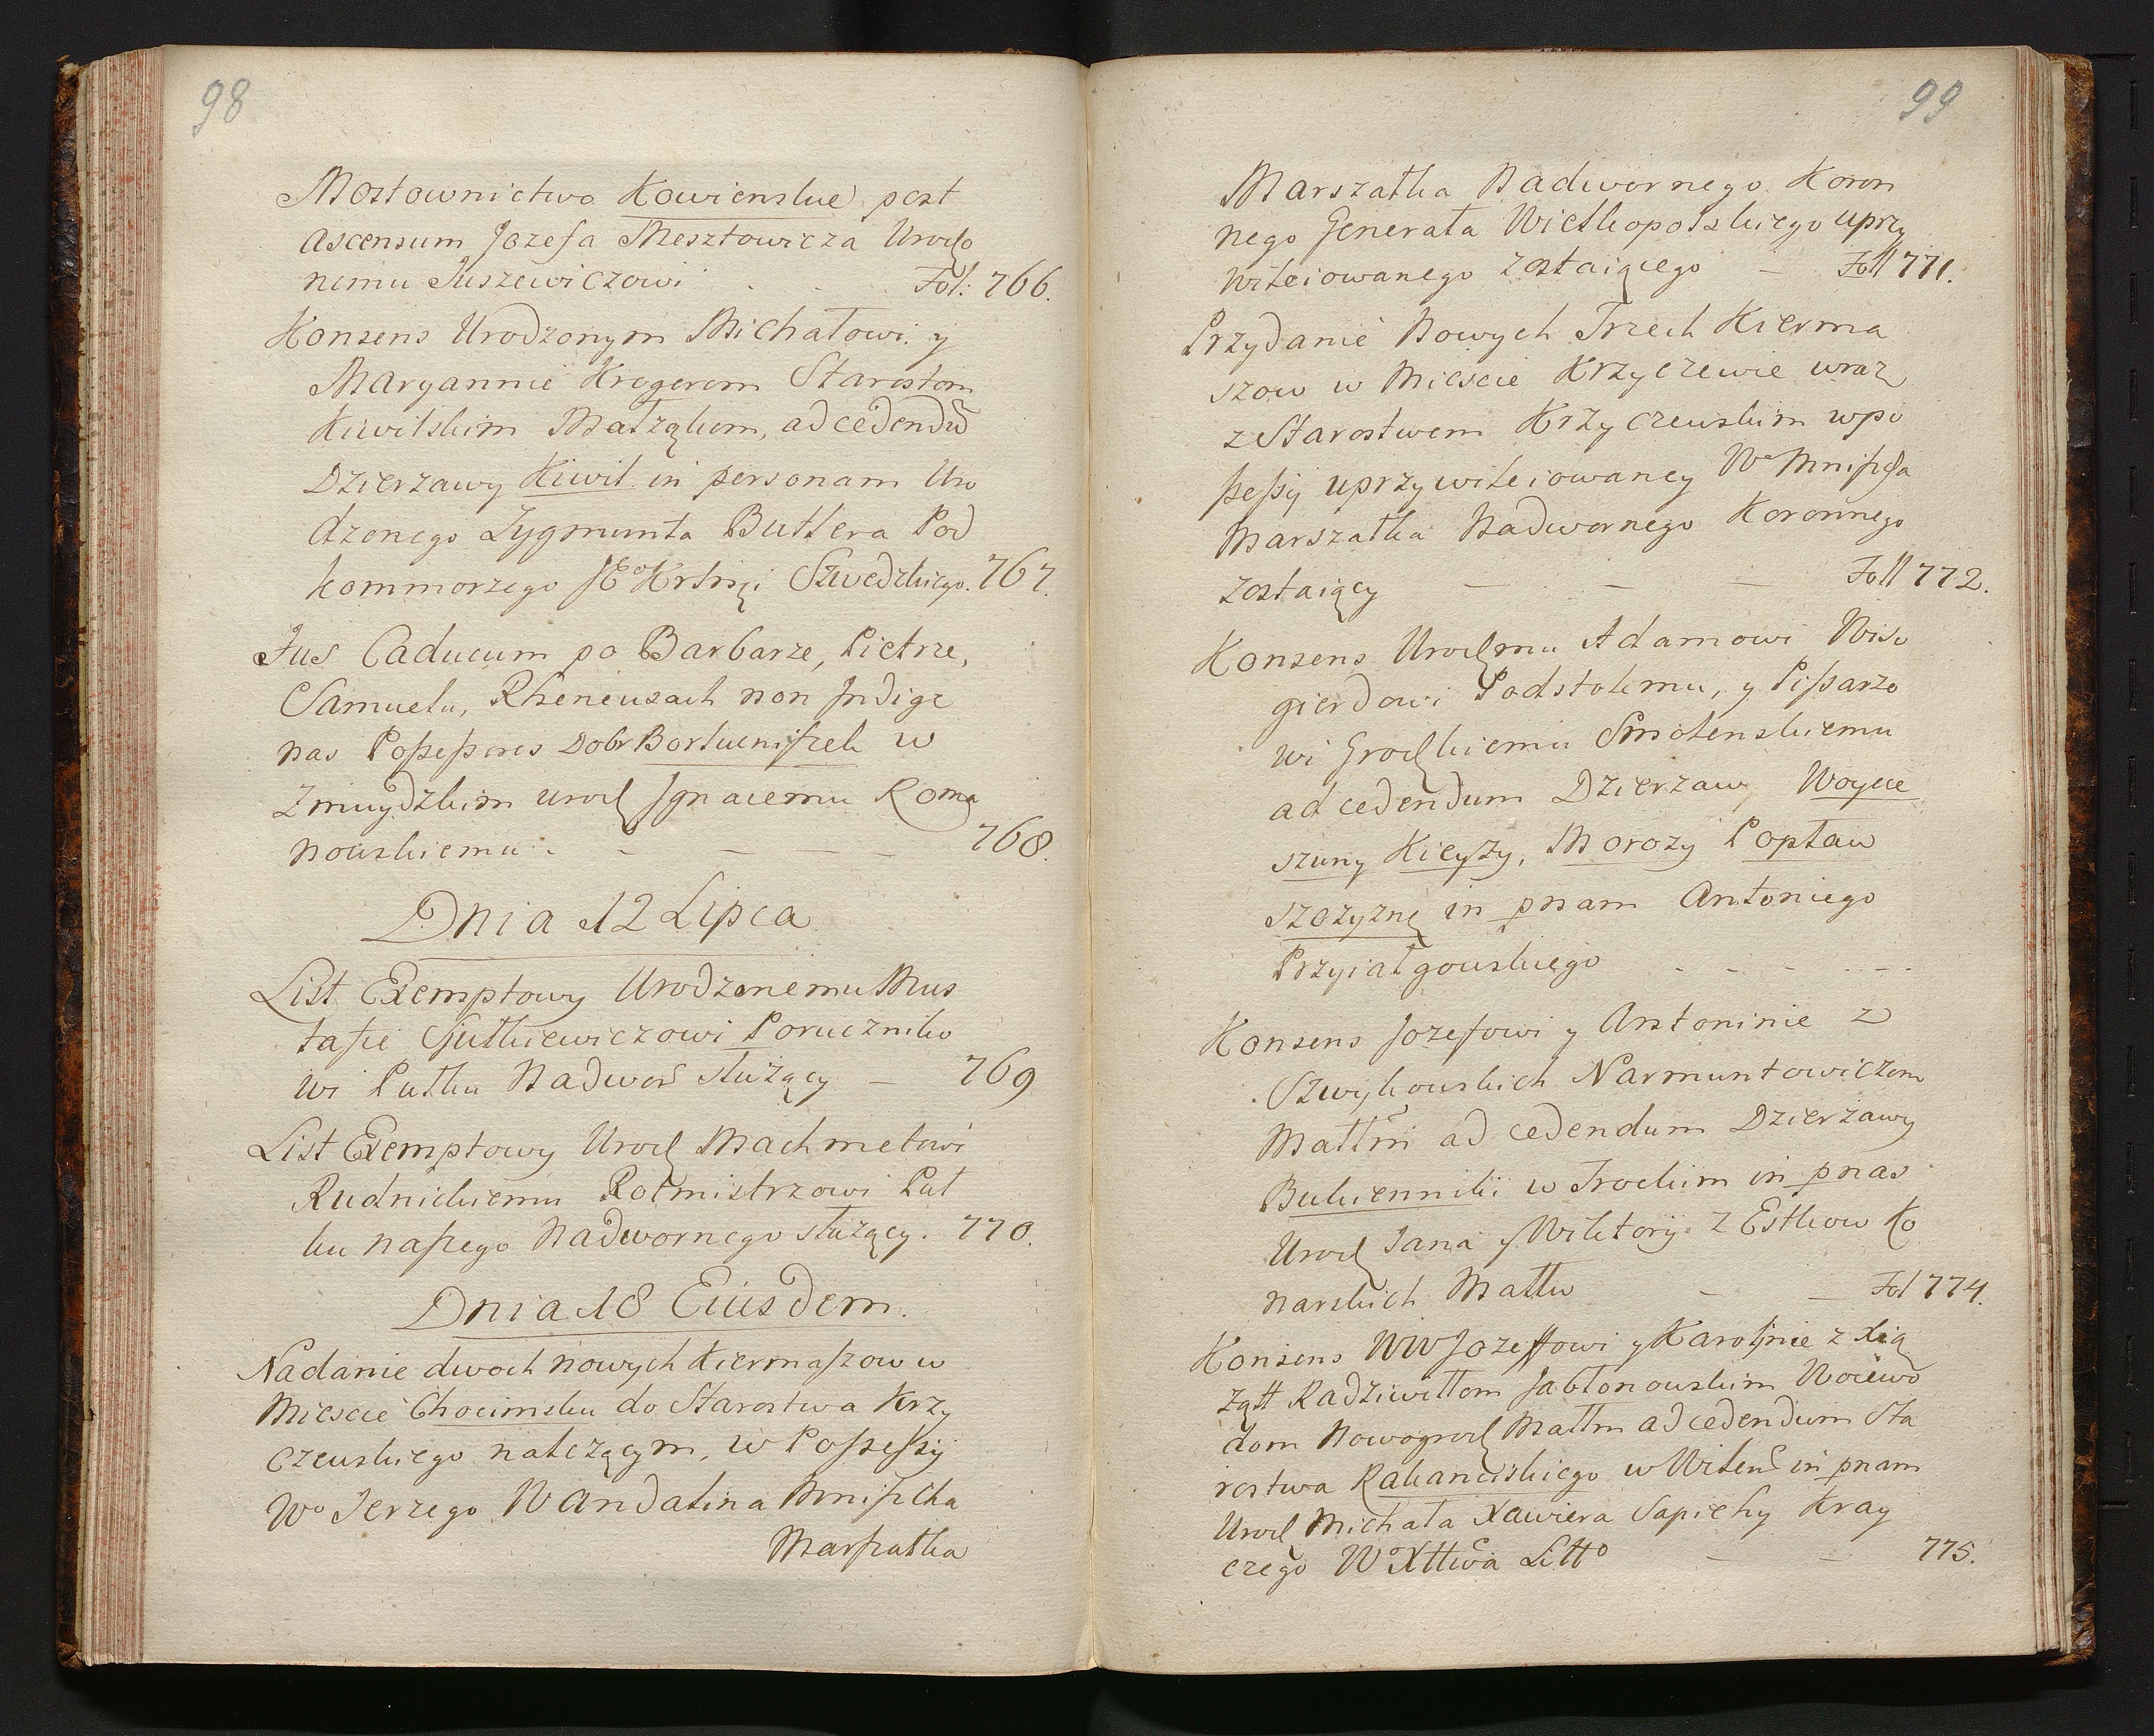 98
Mostownictwo Kowienskie post
ascensum Jozefa Mesztowicza Urodzo
nemu Juszewiczowi . . Fol: 766.
Konsens Urodzonym Michałowi y
Maryannie Krogerom Starostom
Kiwilskim Małząkom, ad cedendũ
Dzierzawy Kiwil in personam Uro
dzonego Zygmunta Butlera Pod
kommorzego JEo Krlrsęi Szwedzkiego. 767.
Jus Caducum po Barbarze, Pietrze,
Samuelu, Rheneusach non Indige
nas Possessores Dobr Bortkieniszek w
Zmuydzkim urodz Ignacemu Roma
nowskiemu . - - - 768.
Dnia 12 Lipca
List Exemptowy Urodzonemu Mus
tafie Gutkiewiczowi Poruczniko
wi Pułku Nadwor słuzący - 769
List Exemptowy Urodz Machmetowi
Rudnickiemu Rotmistrzowi Puł
ku naszego Nadwornego słuzący. 770.
Dnia 18 Eiusdem.
Nadanie dwoch nowych kiermaszow w
Miescie Chocimsku do Starostwa Krzy
czewskiego nalezącym, w Possessyi
Wo Jerzego Wandalina Mniszcha
Marszałka
99
Marszałka Nadwornego Koron
nego Generała Wielkopolskiego uprzy
wileiowanego zostaiącego - Foll 771.
Przydanie Nowych Trzech Kierma
szow w Miescie Krzyczewie wraz
z Starostwem Krzyczewskim w po
ssessyi uprzywileiowaney Wo Mniszcha
Marszałka Nadwornego Koronnego
zostaiący - - - Foll 772.
Konsens Urodzmu Adamowi Wiso
gierdowi Podstolemu, y Pisarzo
wi Grodzkiemu Smolenskiemu
ad cedendum Dzierzaw, Woycie
szuny Kieyzy, Morozy Popław
szczyznę in pnam Antoniego
Przyiałgowskiego . - - - . - - .
Konsens Jozefowi y Antoninie z
Szwykowskich Narmuntowiczom
Małłm ad cedendum Dzierzawy
Bukiennikï w Trockim in pnas
Urodz Jana y Wiktoryi z Estkow Ko
narskich Małłw - - Fol 774.
Konsens WW Jozeffowi y Karolinie z Xią
ząt Radziwiłłom Jabłonowskim Woiewo
dom Nowogrodz Małłm ad cedendum Sta
rostwa Rakanciskiego w Wilens in pnam
Urodz Michała Xawiera Sapiehy Kray
czego Wo Xttwa Litto - - 775.